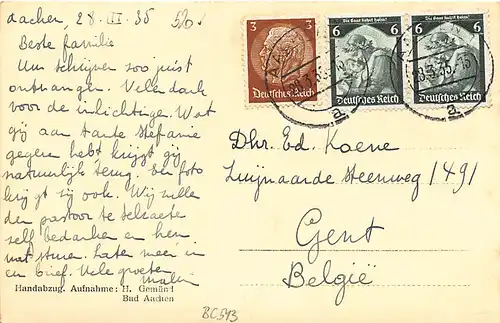 Aachen, 28.III.35
Beste familie
Uw schrijven zoo juist
ontvangen. Vele dank
voor de inlichtige. Wat
gij aan tante Stefanie
gegeven hebt krijgt gij
natuurlijk terug. Een foto
krijgt gij ook. Wij zullen
den pastoor te
zelf bedanken en hem
wat sturen. Later meer in
en brief. Vele groeten
Handabzug. Aufnahme: H. Gemünd
Bad Aachen
BC593
3 3
Deutsches Reich
Die Saar kehrt heim!
6 6
Deutsches Reich
Die Saar kehrt heim!
6 6
Deutsches Reich
a
a
Dhr. Ed. Koene
Zwijnaarde Steenweg 1491
Gent
België